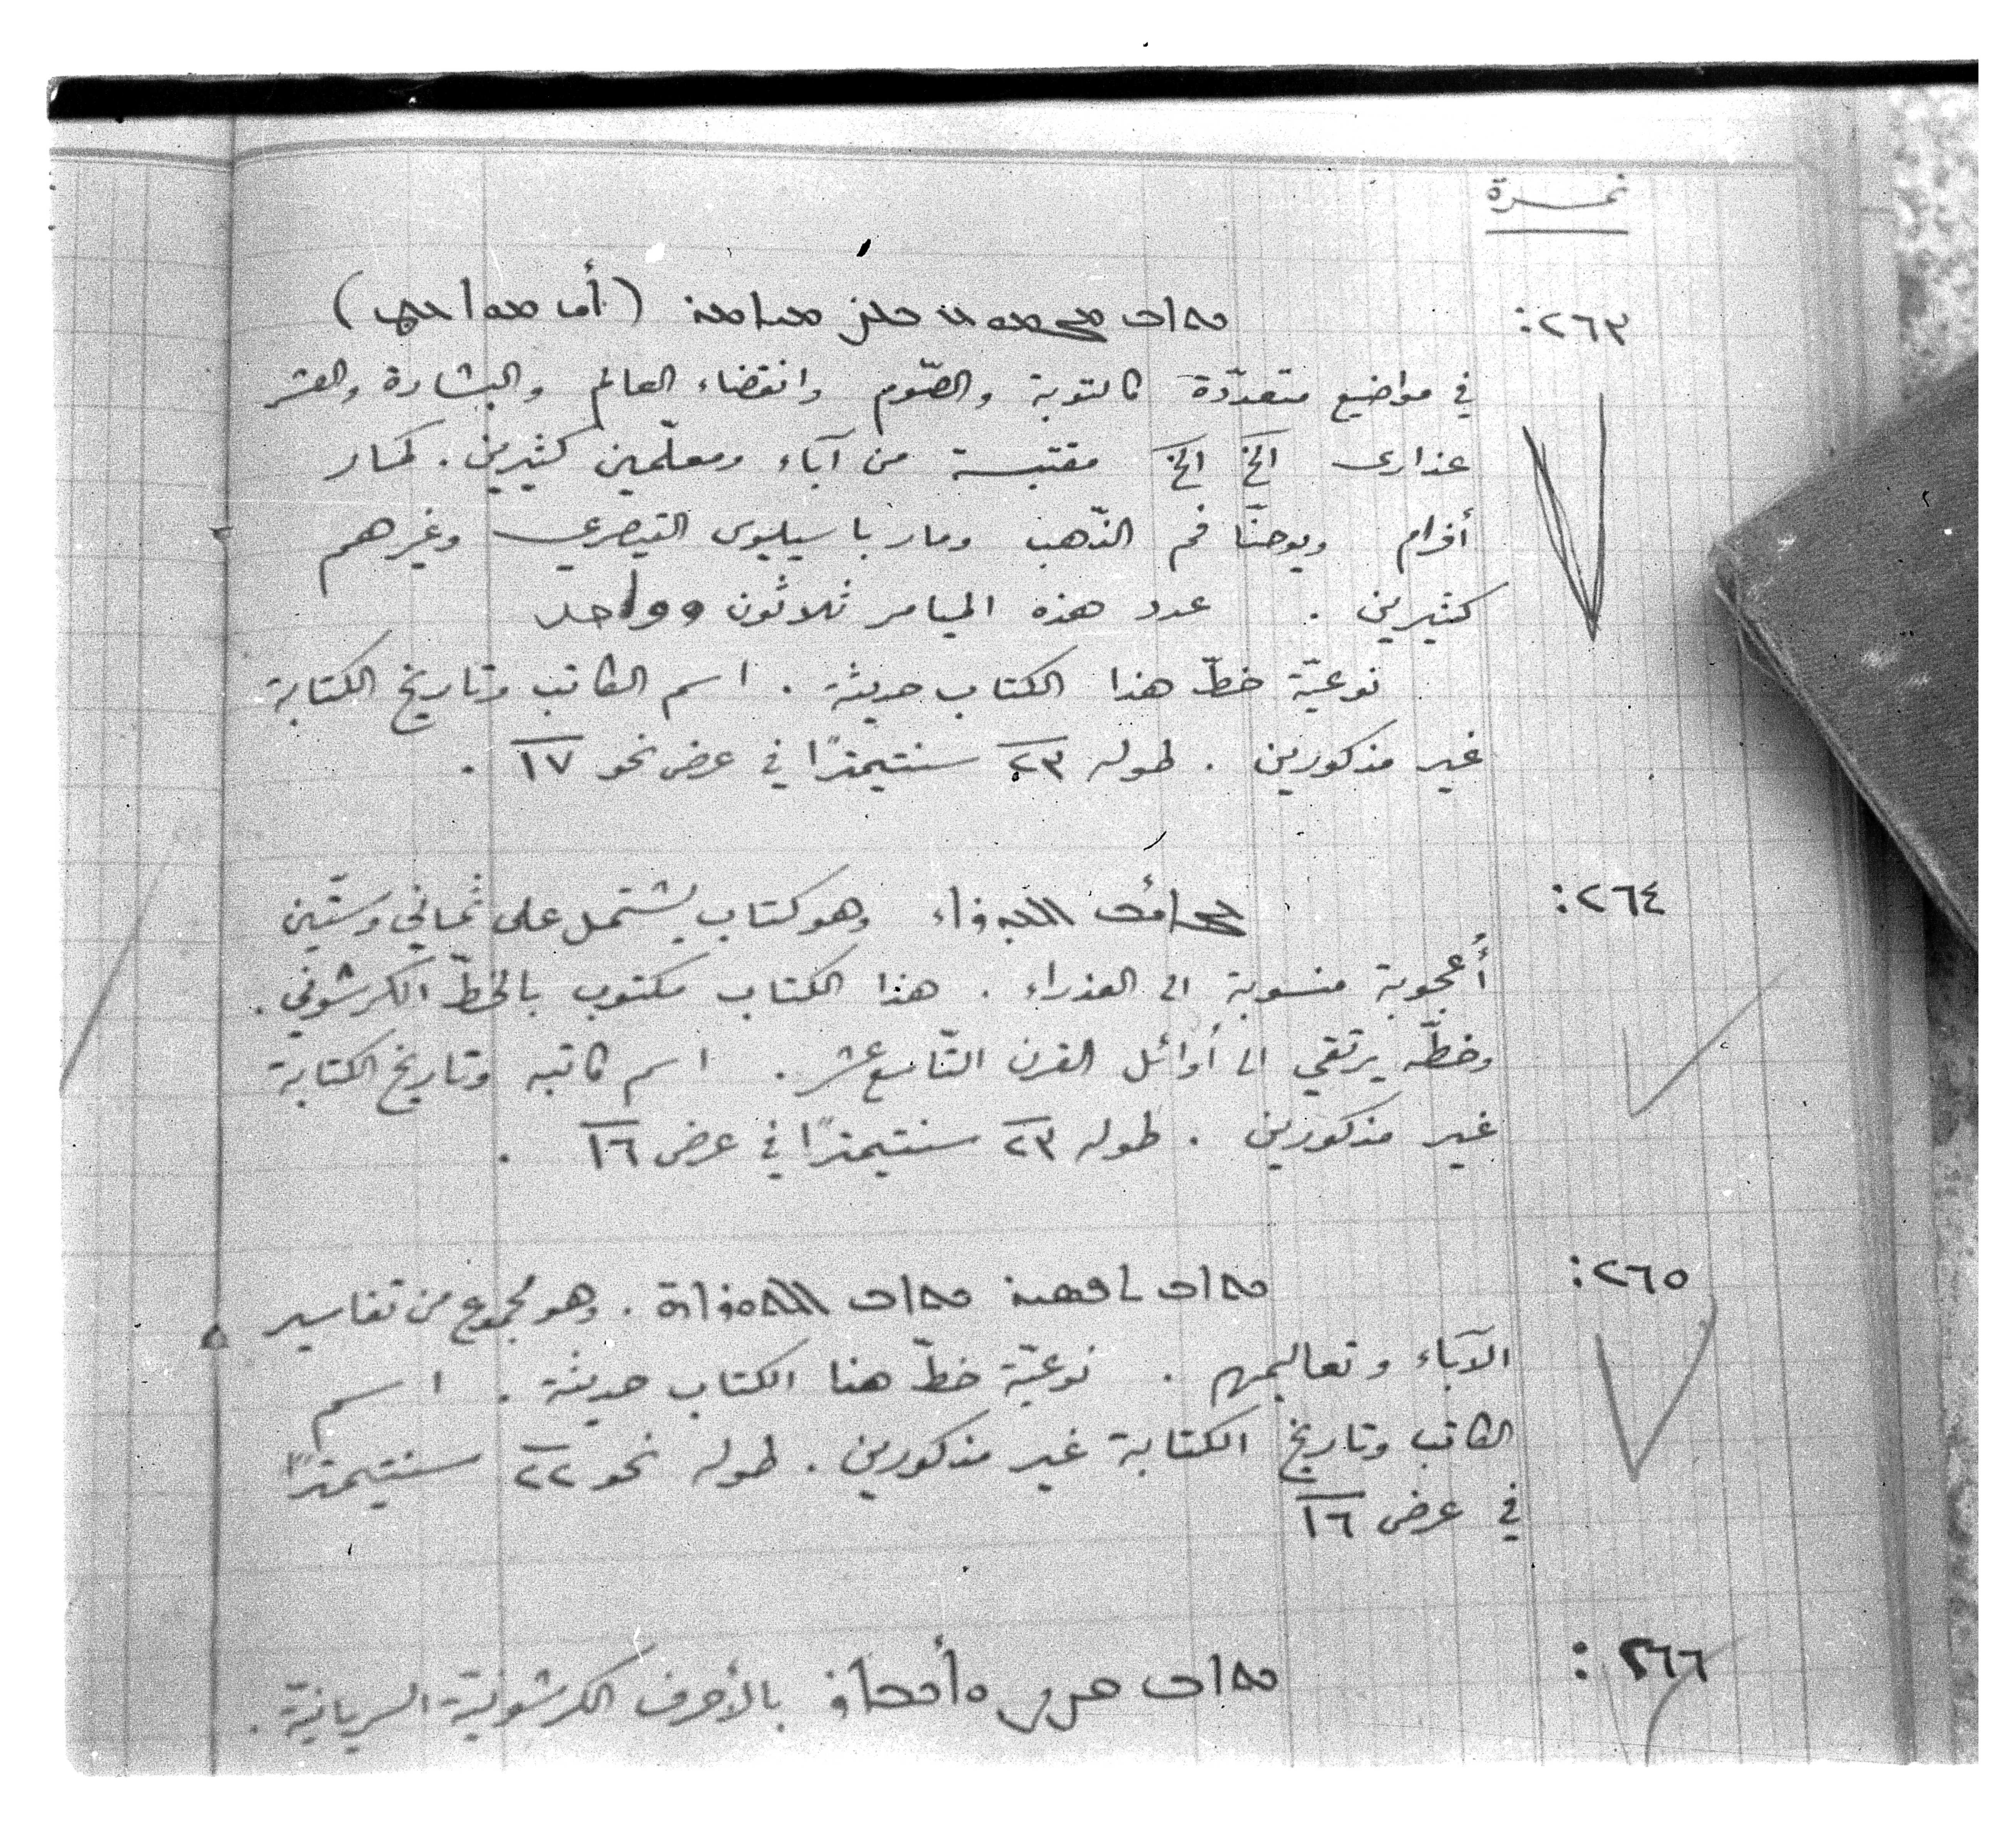 نمرة
٢٦٣:
في مواضيع متعدّدة كالتوبة والصّوم وانقضاء العالم والبشارة والعشر
عذارى الخ الخ مقتبسة من آباء ومعلّمين كثيرين. كمار
أفرام ويوحنّا فم الذّهب ومار باسيليوس القيصري وغيرهم
كثيرين . عدد هذه الميامر ثلاثون وواحد
نوعيّة خطّ هذا الكتاب حديثة . اسم الكاتب وتاريخ الكتابة
غير مذكورين . طوله ٢٣ سنتيمترًا في عرض نحو ١٧ .
٢٦٤: وهو كتاب يشتمل على ثماني وستّين
أُعجوبة منسوبة الى العذراء . هذا الكتاب مكتوب بالخطّ الكرشوني .
وخطّه يرتقي الى أوائل القرن التّاسع عشر . اسم كاتبه وتاريخ الكتابة
غير مذكورين . طوله ٢٣ سنتيمترًا في عرض ١٦ .
٢٦٥: ܟܬܐܒ ܬܦܣܝܪ ܟܬܐܒ . وهو مجموع من تفاسير
الآباء وتعاليمهم . نوعيّة خطّ هذا الكتاب حديثة . اسم
الكاتب وتاريخ الكتابة غير مذكورين . طوله نحو ٢٢ سنتيمترًا
في عرض ١٦
٢٦٦: ܟܬܐܒ بالأحرف الكرشونيّة السريانيّة .